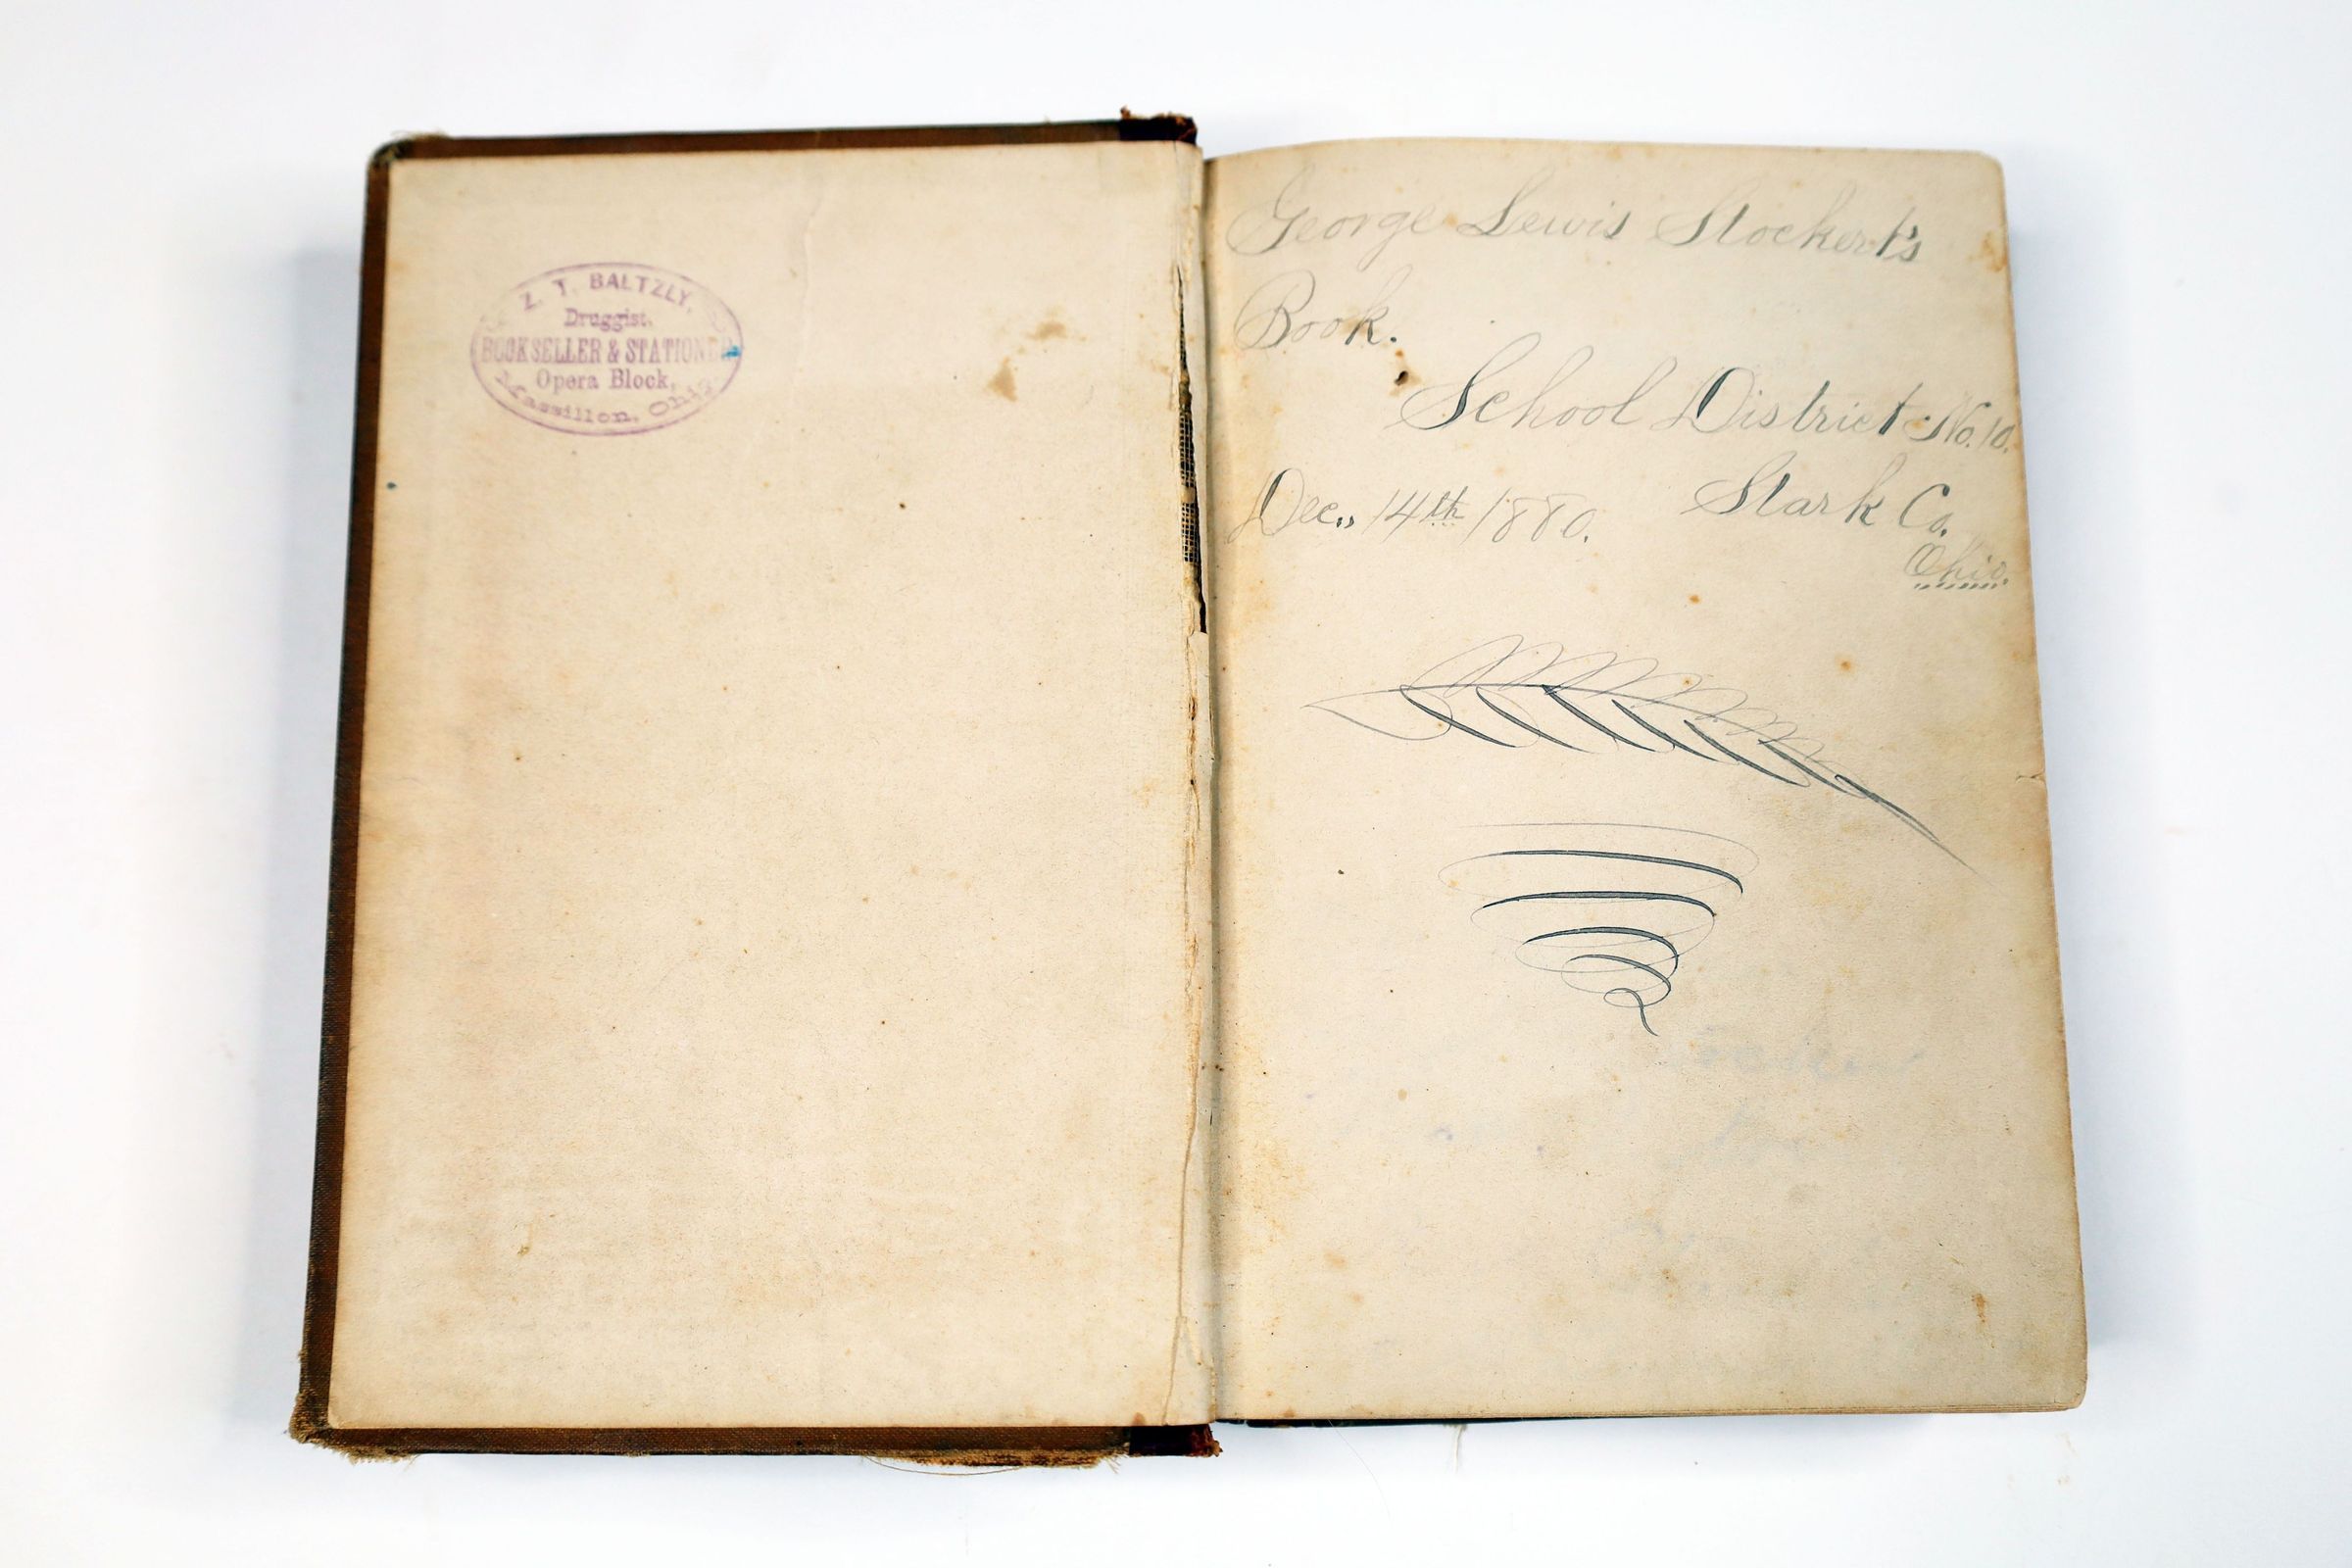 Z. T. BALTZLY,
Druggist,
BOOKSELLER & STATIONER
Opera Block,
Massillon, Ohio.
George Lewis Stockert's
Book.
School District No. 10.
Dec., 14th 1880. Stark Co.
Ohio.